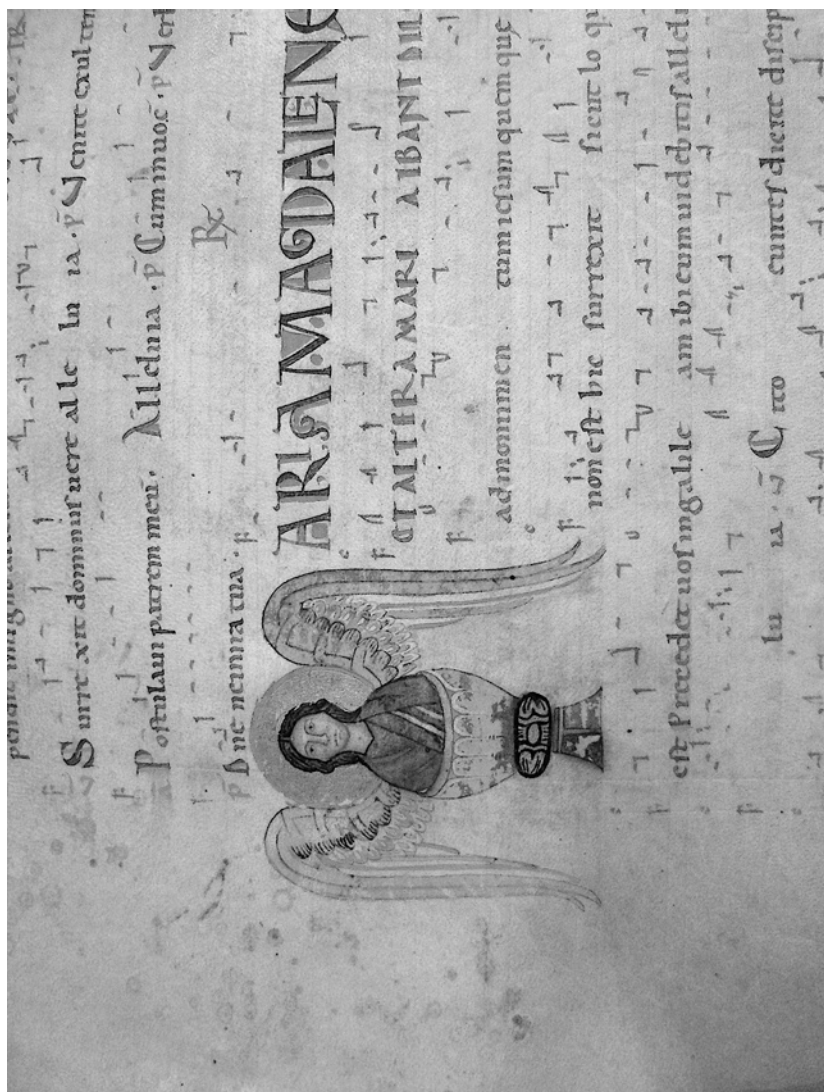 Surre xit dominus uere al le lu ia · p̄ Venite exultem
Postulaui patrem meū · Alleluia · p̄ Cum inuoc̄ · p̄ Verb
p̄ Dn̄e ne in ira tua · ℟
ARIA MADALENE
ET ALTERA MARI A IBANT DILI
ad monumen tum iesum quem que
non est hic surrexit sicut lo qu
est Precedet uos in galile am ibi eum uidebitis allelu
lu ia · ℣ Cito euntes dicite discip